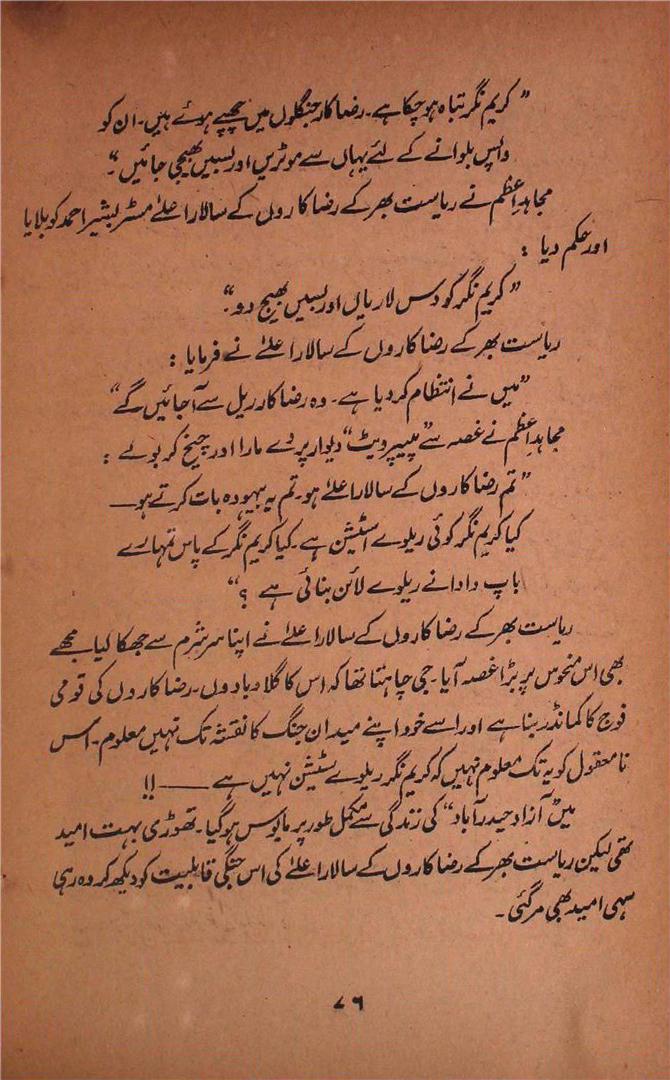 ”کریم نگر تباہ ہو چکا ہے۔ رضا کار جنگلوں میں چھپے ہوئے ہیں۔ ان کو
واپس بلوانے کے لئے یہاں سے موٹریں اور بسیں بھیجی جائیں“۔
مجاہدِ اعظم نے ریاست بھر کے رضا کاروں کے سالارِ اعلےٰ مسٹر بشیر احمد کو بلایا
اور حکم دیا :
”کریم نگر کو دس لاریاں اور بسیں بھیج دو“۔
ریاست بھر کے رضا کاروں کے سالارا علےٰ نے فرمایا :
”میں نے انتظام کر دیا ہے۔ وہ رضا کار ریل سے آجائیں گے“
مجاہدِ اعظم نے غصہ سے ”پیپر ویٹ“ دیوار پر دے مارا اور چیخ کر بولے :
”تم رضا کاروں کے سالارا علےٰ ہو۔ تم یہ بیہودہ بات کرتے ہو۔
کیا کریم نگر کوئی ریلوے اسٹیشن ہے۔ کیا کریم نگر کے پاس تمہارے
باپ دادا نے ریلوے لائن بنائی ہے ؟“
ریاست بھر کے رضا کاروں کے سالارا علےٰ نے اپنا سر شرم سے جھکا لیا۔ مجھے
بھی اس منحوس پر بڑا غصہ آیا۔ جی چاہتا تھا کہ اس کا گلا دبا دوں۔ رضا کاروں کی قومی
فوج کا کمانڈر بنا ہے اور اسے خود اپنے میدانِ جنگ کا نقشہ تک نہیں معلوم۔ اس
نامعقول کو یہ تک معلوم نہیں کہ کریم نگر ریلوے سٹیشن نہیں ہے ——!!
میں ”آزاد حیدرآباد“ کی زندگی سے مکمل طور پر مایوس ہو گیا۔ تھوڑی بہت امید
تھی لیکن ریاست بھر کے رضا کاروں کے سالارا علےٰ کی اس جنگی قابلیت کو دیکھ کر وہ رہی
سہی امید بھی مر گئی۔
۷۶